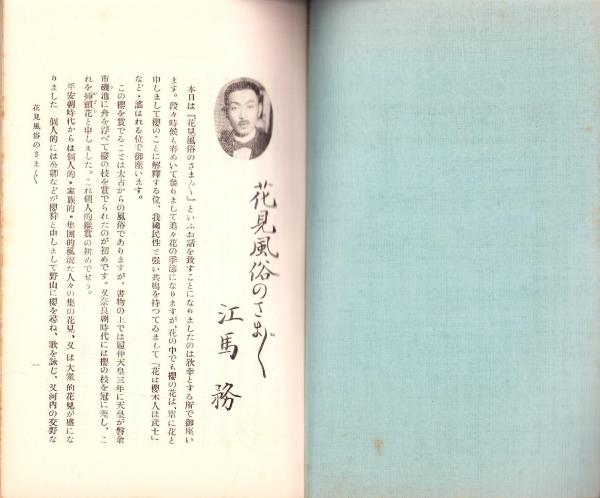 花見風俗のさま〴〵
江馬務
本日は『花見風俗のさま〴〵』といふお話を致すことになりましたのは欣幸とする所で御座い
ます。段々時候も春めいて參りまして追々花の季節になりますが、花の中でも櫻の花は、單に花と
申しまして櫻のことに解釋する位、我國民性と强い共鳴を持つてゐまして「花は櫻木人は武士」
など・謠はれる位で御座います。
この櫻を賞でることは太古からの風俗でありますが、書物の上では履仲天皇三年に天皇が磐余
市磯池に舟を浮べて櫻の枝を賞でられたのが初めです。又奈良朝時代には櫻の枝を冠に差し、こ
れを挿頭花と申しました。これ個人的鑑賞の初めでせう。
平安朝時代からは個人的・家族的・集團的風流な人々の集の花見、又は大衆的花見が盛にな
りました　個人的には公卿などが櫻狩と申しまして野山に櫻を尋ね、歌を詠じ、又河內の交野な
花見風俗のさま〴〵
一